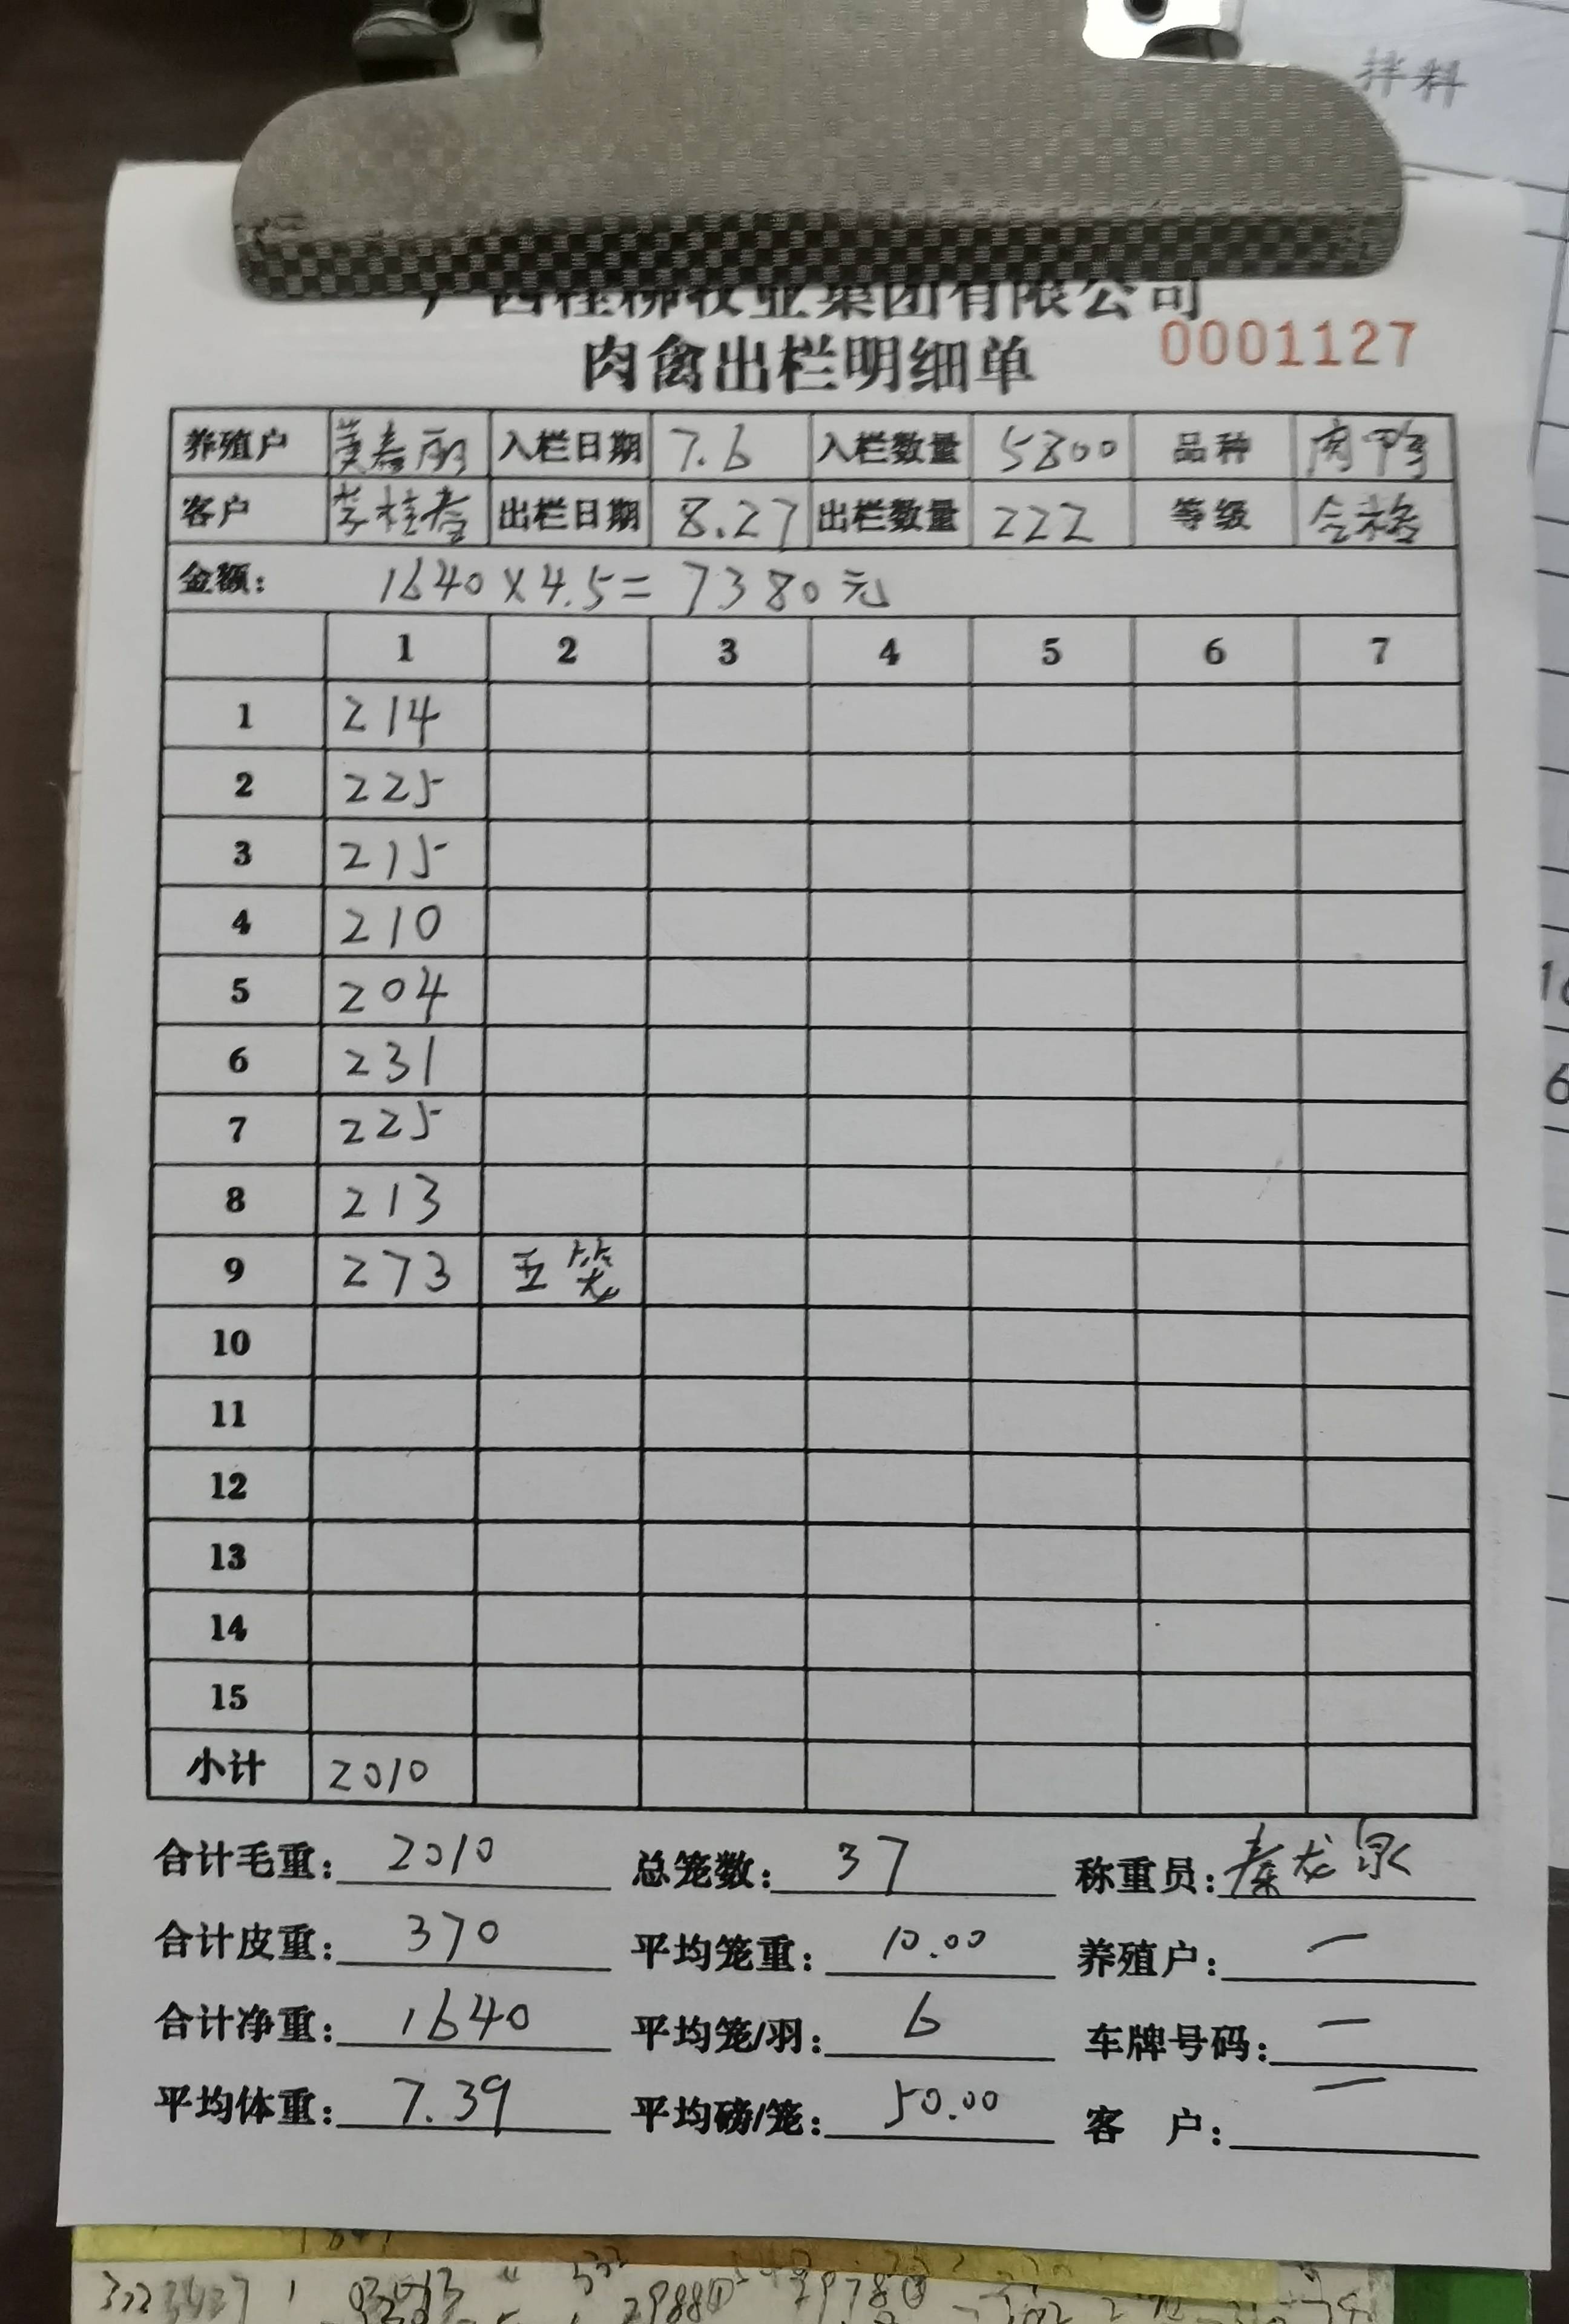 拌料
广西桂柳牧业集团有限公司
肉禽出栏明细单 0001127
养殖户 黄春丽 入栏日期 7.6 入栏数量 5800 品种 肉鸭
客户 李桂香 出栏日期 8.27 出栏数量 222 等级 合格
金额: 1640×4.5=7380元
1 2 3 4 5 6 7
1 214
2 225
3 215
4 210
5 204
6 231
7 225
8 213
9 273 五笼
10
11
12
13
14
15
小计 2010
合计毛重: 2010 总笼数: 37 称重员: 秦龙泉
合计皮重: 370 平均笼重: 10.00 养殖户: 一
合计净重: 1640 平均笼/羽: 6 车牌号码: 一
平均体重: 7.39 平均磅/笼: 50.00 客 户: 一